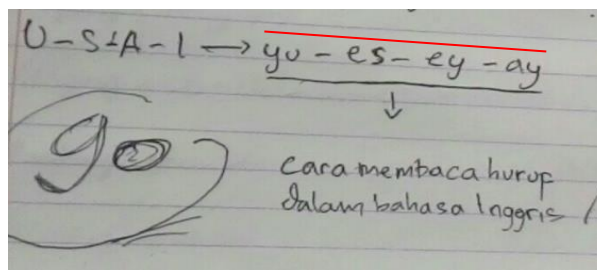 U-S-A-I → yu-es-ey-ay
↓
90
cara membaca hurup
dalam bahasa Inggris